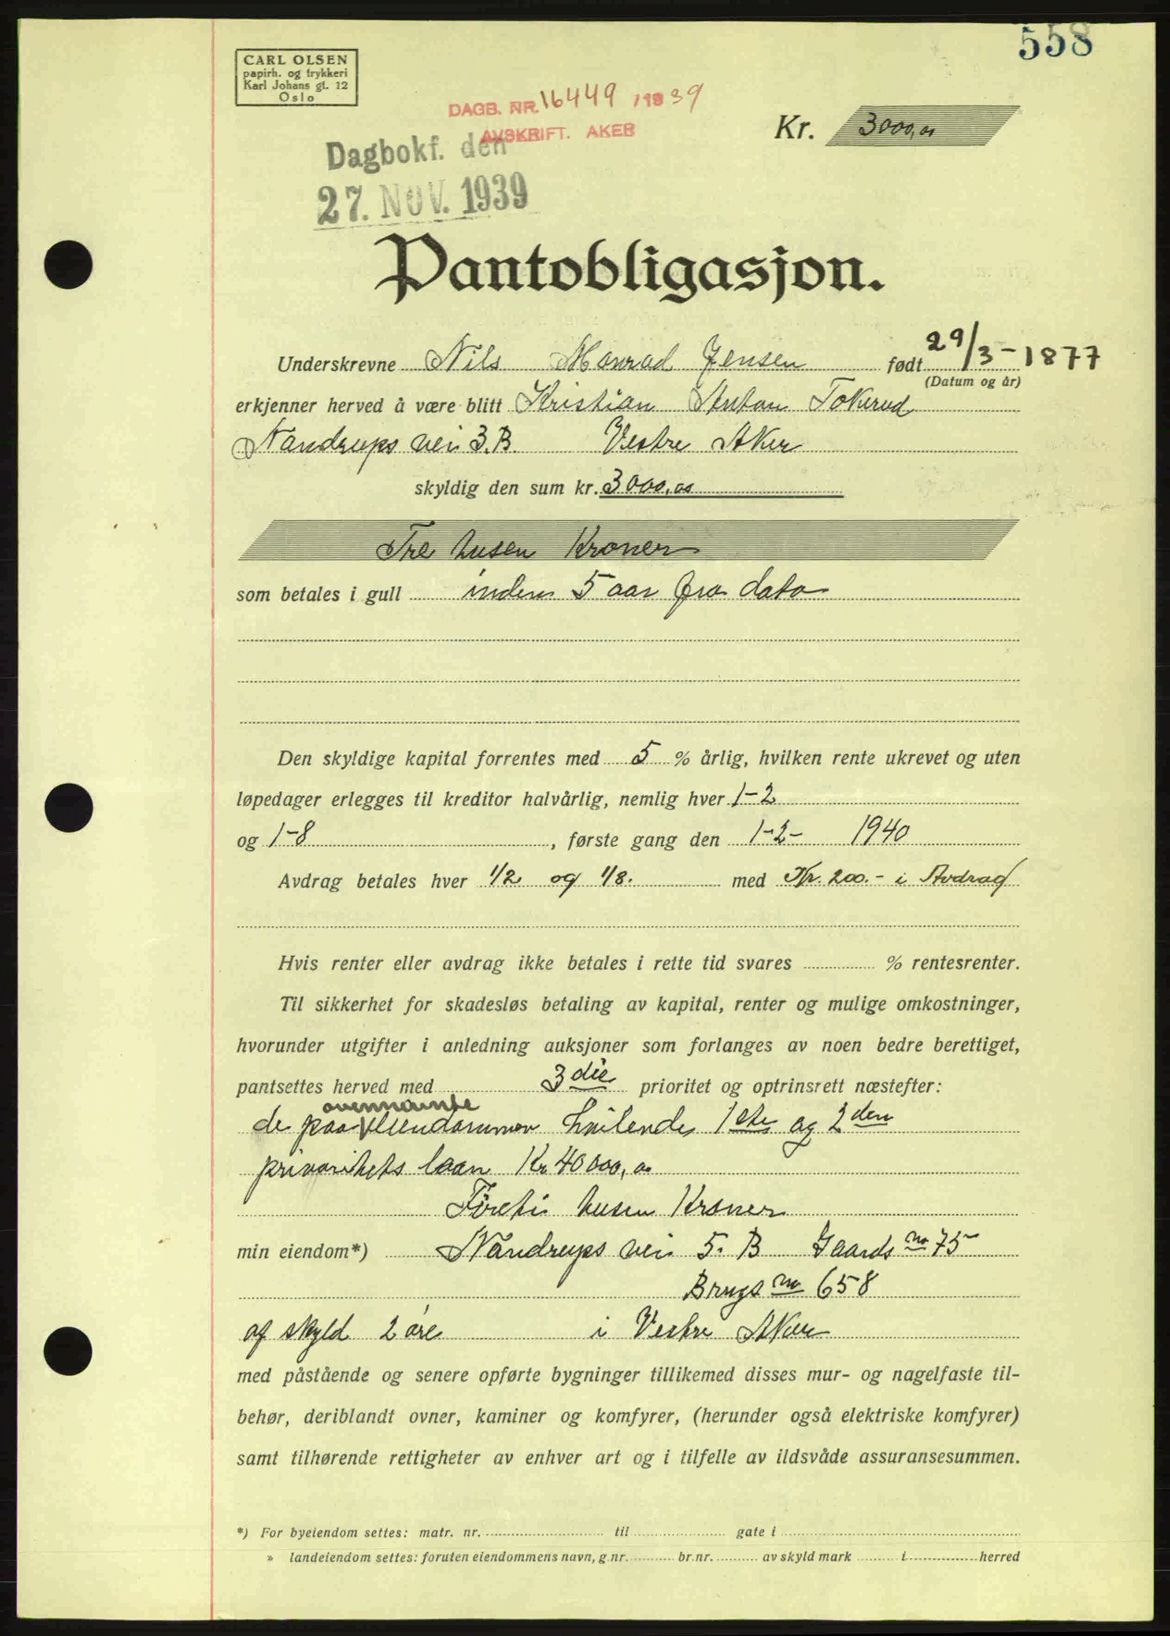 558
CARL OLSEN
papirh. og trykkeri
Karl Johans gt. 12
Oslo
DAGB. NR. 16449 /1939
AVSKRIFT. AKER
Kr. 3000,00
Dagbokf. den
27. NOV. 1939
Pantobligasjon.
Underskrevne Nils Monrad Jensen født 29/3-1877
(Datum og år)
erkjenner herved å være blitt Kristian Anton Tokerud
Nandrups vei 3.B Vestre Aker
skyldig den sum kr. 3000,00
Tre tusen Kroner
som betales i gull inden 5 aar fra dato
Den skyldige kapital forrentes med 5 % årlig, hvilken rente ukrevet og uten
løpedager erlegges til kreditor halvårlig, nemlig hver 1-2
og 1-8, første gang den 1-2- 1940
Avdrag betales hver 1/2 og 1/8. med Kr. 200.- i Avdrag
Hvis renter eller avdrag ikke betales i rette tid svares % rentesrenter.
Til sikkerhet for skadesløs betaling av kapital, renter og mulige omkostninger,
hvorunder utgifter i anledning auksjoner som forlanges av noen bedre berettiget,
pantsettes herved med 3die prioritet og optrinsrett næstefter:
ovennævnte
de paa eiendommen hvilende 1ste og 2den
prioritets laan Kr 40000,00
Førti tusen Kroner
min eiendom*) Nandrups vei 5. B Gaards no 75
Brugs no 658
af skyld 2 øre i Vestre Aker
med påstående og senere opførte bygninger tillikemed disses mur- og nagelfaste til-
behør, deriblandt ovner, kaminer og komfyrer, (herunder også elektriske komfyrer)
samt tilhørende rettigheter av enhver art og i tilfelle av ildsvåde assuransesummen.
*) For byeiendom settes: matr. nr. til gate i
» landeiendom settes: foruten eiendommens navn, g.nr. br.nr. av skyld mark i herred